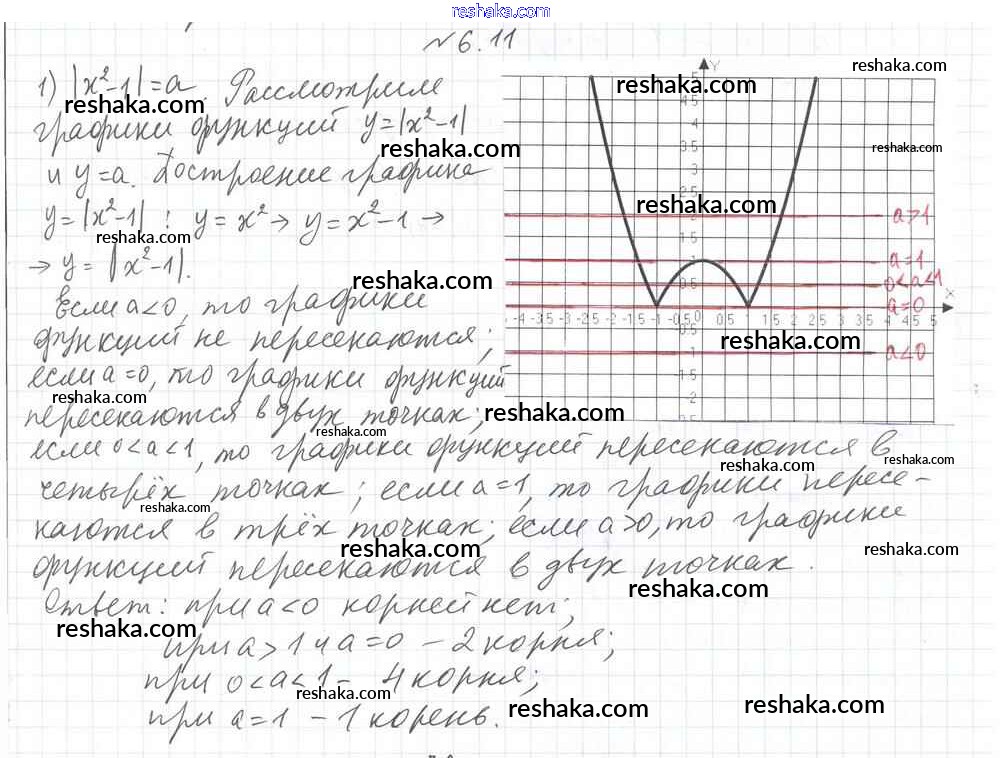 reshaka.com
№6.11
1) |x²-1|=a. Рассмотрим
reshaka.com
графики функций y=|x²-1|
reshaka.com
и y=a. Построение графика
y=|x²-1| : y=x² → y=x²-1 →
reshaka.com
→ y=|x²-1|.
reshaka.com
Если a<0, то графики
функций не пересекаются;
если a=0, то графики функций
reshaka.com
пересекаются в двух точках;
reshaka.com
reshaka.com
если 0<a<1, то графики функций пересекаются в
reshaka.com
четырёх точках; если a=1, то графики пересе-
reshaka.com
каются в трёх точках; если a>0, то графики
reshaka.com
reshaka.com
функций пересекаются в двух точках.
reshaka.com
Ответ: при a<0 корней нет;
reshaka.com
при a>1 и a=0 - 2 корня;
при 0<a<1 - 4 корня;
reshaka.com
при a=1 - 1 корень.
reshaka.com
reshaka.com
reshaka.com
Y
5
reshaka.com
4.5
reshaka.com
3.5
reshaka.com
2.5
a>1
1.5
a=1
0<a<1
0.5
X
a=0
-4.5 -4 -3.5 -3 -2.5 -2 -1.5 -1 -0.5 0 0.5 1 1.5 2 2.5 3 3.5 4 4.5 5
reshaka.com
a<0